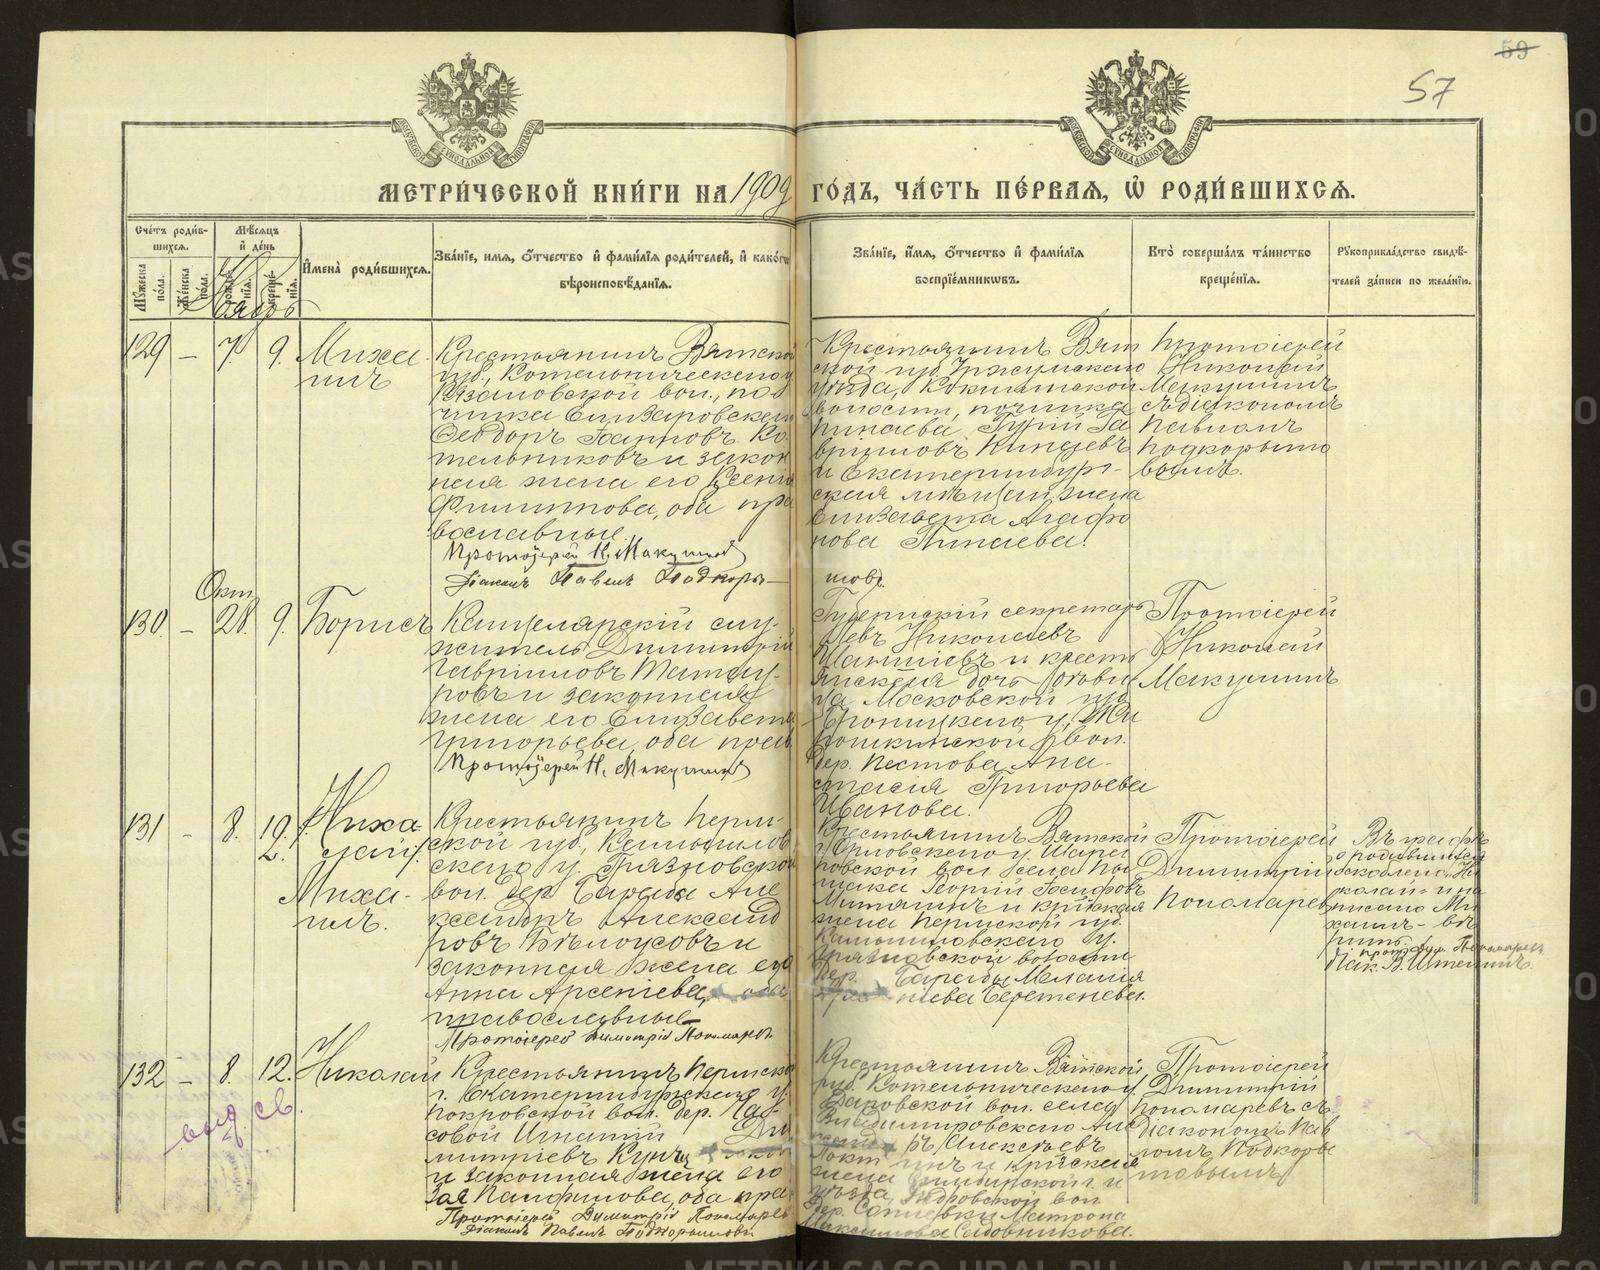 59
57
МЕТРИ́ЧЕСКОЙ КНИ́ГИ НА 1909 ГО́ДЪ, ЧА́СТЬ ПЕ́РВАЯ, Ѡ РОДИ́ВШИХСѦ.
Сче́тъ роди́в-
шихся.
Мѣ́сяцъ
и҆ де́нь
Мꙋжеска по́ла.
Же́нска по́ла.
рожде́нїя.
креще́нїя.
Ноябрь
И҆мена̀ роди́вшихся.
Зва́нїе, имя, ѻ҆́тчество и҆ фами́лїя роди́телей, и҆ како́гѡ
вѣроисповѣ́данїя.
Зва́нїе, и҆́мя, ѻ҆́тчество и҆ фами́лїя
воспрїе́мникѡвъ.
Кто̀ соверша́лъ та́инство
креще́нїя.
Рꙋкоприкла́дство свидѣ́-
телей за́писи по жела́нїю.
129 – 7. 9. Миха-
илъ
Крестьянинъ Вятской
губ., Котельническаго у.
Казаковской вол., по-
чинка Елизаровскаго
Ѳеодоръ Іоанновъ Ко-
тельниковъ и закон
ная жена его Ксенія
Филиппова, оба пра
вославные.
Протоіерей Н. Макушинъ
Діаконъ Павелъ Подкоры-
товъ.
Крестьянинъ Вят
ской губ. Уржумскаго
уѣзда, Кокшинской
волости, починка
Пинаева Гурій Га
вріиловъ Пинаевъ
и Екатеринбург-
ская мѣщан. жена
Елизавета Агафо
нова Пинаева.
Протоіерей
Николай
Макушинъ
съ діакономъ
Павломъ
Подкорыто
вымъ.
Окт.
130. – 28. 9. Борисъ
Канцелярскій слу-
житель Димитрій
Гавріиловъ Татау-
ровъ и законная
жена его Елизавета
Григорьева, оба прав.
Протоіерей Н. Макушинъ
Губернскій секретарь
Левъ Николаевъ
и кресть
янская дочь дѣви
ца Московской губ.
Бронницкаго у.
вол.
дер. Пестова Ана-
стасія Григорьева
Иванова.
Протоіерей
Николай
Макушинъ
131 – 8. 12. Нико-
лай
Миха-
илъ.
Крестьянинъ Перм-
ской губ, Камышлов
скаго у. Грязновской
вол. дер. Бараба Але
ксандръ Александ
ровъ Бѣлоусовъ и
законная жена его
Анна Арсеніева, оба
православные
Протоіерей Димитрій Пономаревъ
Крестьянинъ Вятской
г. Орловскаго у. Шара
новской вол. села По
Георгій Іосифовъ
Митягинъ и крестьянская
жена Пермской губ.
Камышловскаго у.
Грязновской волости
дер. Барабы Меланія
Протоіерей
Димитрій
Пономаревъ
Въ графѣ
о родившихся
зачеркнуто Ни
колай и на
писано Ми
хаилъ – вѣ
рить.
прот. Дим. Пономаревъ
132 – 8. 12. Николай
выд св.
Крестьянинъ Пермской
г. Екатеринбургскаго у.
Покровской вол. дер. Ча-
совой Игнатій Ди
митріевъ
и законная жена его
Зоя Панфилова, оба пра
Протоіерей Димитрій Пономаревъ
Діаконъ Павелъ Подкорытовъ
Крестьянинъ Вятской
губ. Котельническаго у.
вол. села
Владимировскаго Але
Алексѣевъ
и крестьянская
жена Симбирской г. и
уѣзда, вол.
дер. Матрона
Максимова Садовникова.
Протоіерей
Димитрій
Пономаревъ съ
діакономъ Пав
ломъ Подкоры
товымъ
METRIKI.GASO-URAL.RU